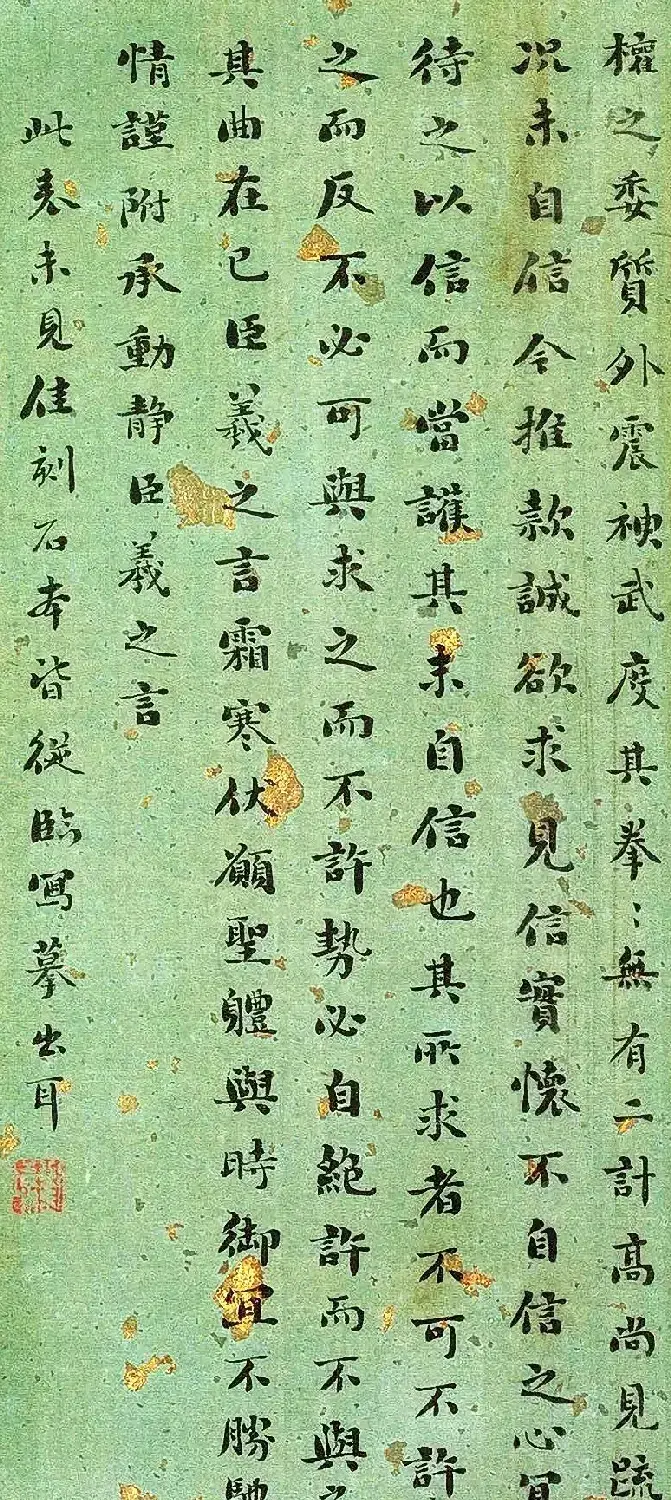 權之委質外震神武度其拳〻無有二計高尚見疏
况未自信今推款誠欲求見信實懷不自信之心宜
待之以信而當護其未自信也其所求者不可不許
之而反不必可與求之而不許勢必自絕許而不與
其曲在己臣羲之言霜寒伏願聖體與時御宜不勝馳
情謹附承動靜臣羲之言
此表未見佳刻石本皆從臨寫摹出耳